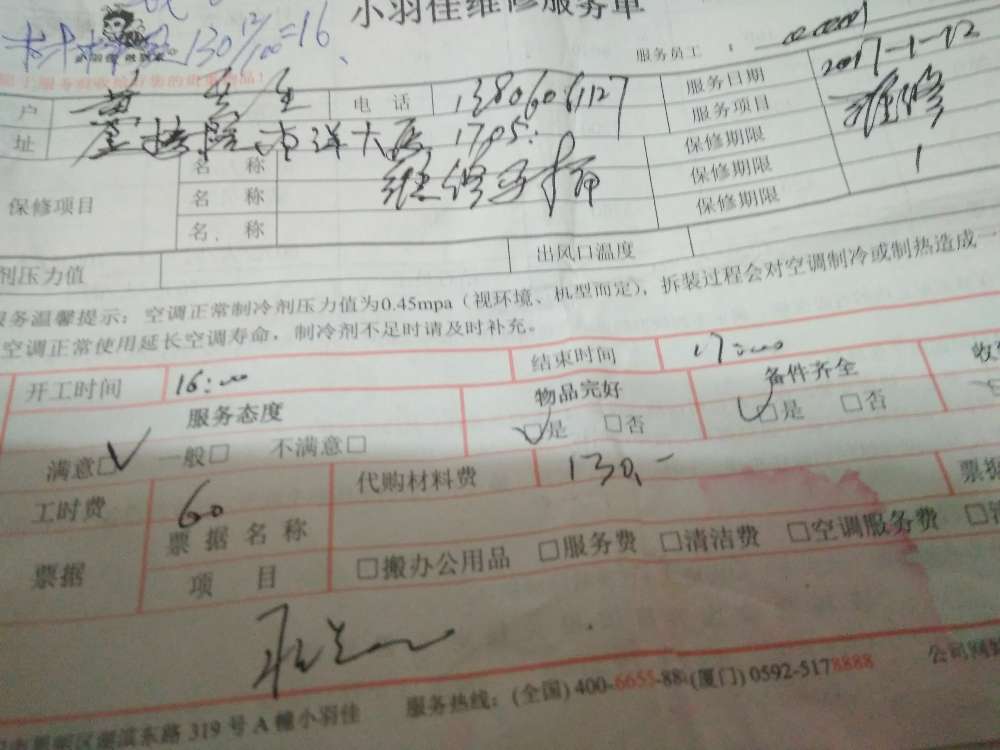 小羽佳维修服务单
130 12/100=16
服务员工：
户 黄先生 电话 13806061127 服务日期 2017-1-12
址 1705 服务项目 维修
名称 保修期限
保修项目 名称 维修 保修期限 1
名称 保修期限
剂压力值 出风口温度
服务温馨提示：空调正常制冷剂压力值为0.45mpa（视环境、机型而定），拆装过程会对空调制冷或制热造成一
空调正常使用延长空调寿命，制冷剂不足时请及时补充。
开工时间 16:00 结束时间 17:00
服务态度 物品完好 备件齐全
满意□ 一般□ 不满意□ □是 □否 □是 □否
工时费 60 代购材料费 130.- 票据
票据 票据名称
项目 □搬办公用品 □服务费 □清洁费 □空调服务费
东路319号A幢小羽佳 服务热线：(全国) 400-6655-88 (厦门) 0592-5178888 公司网